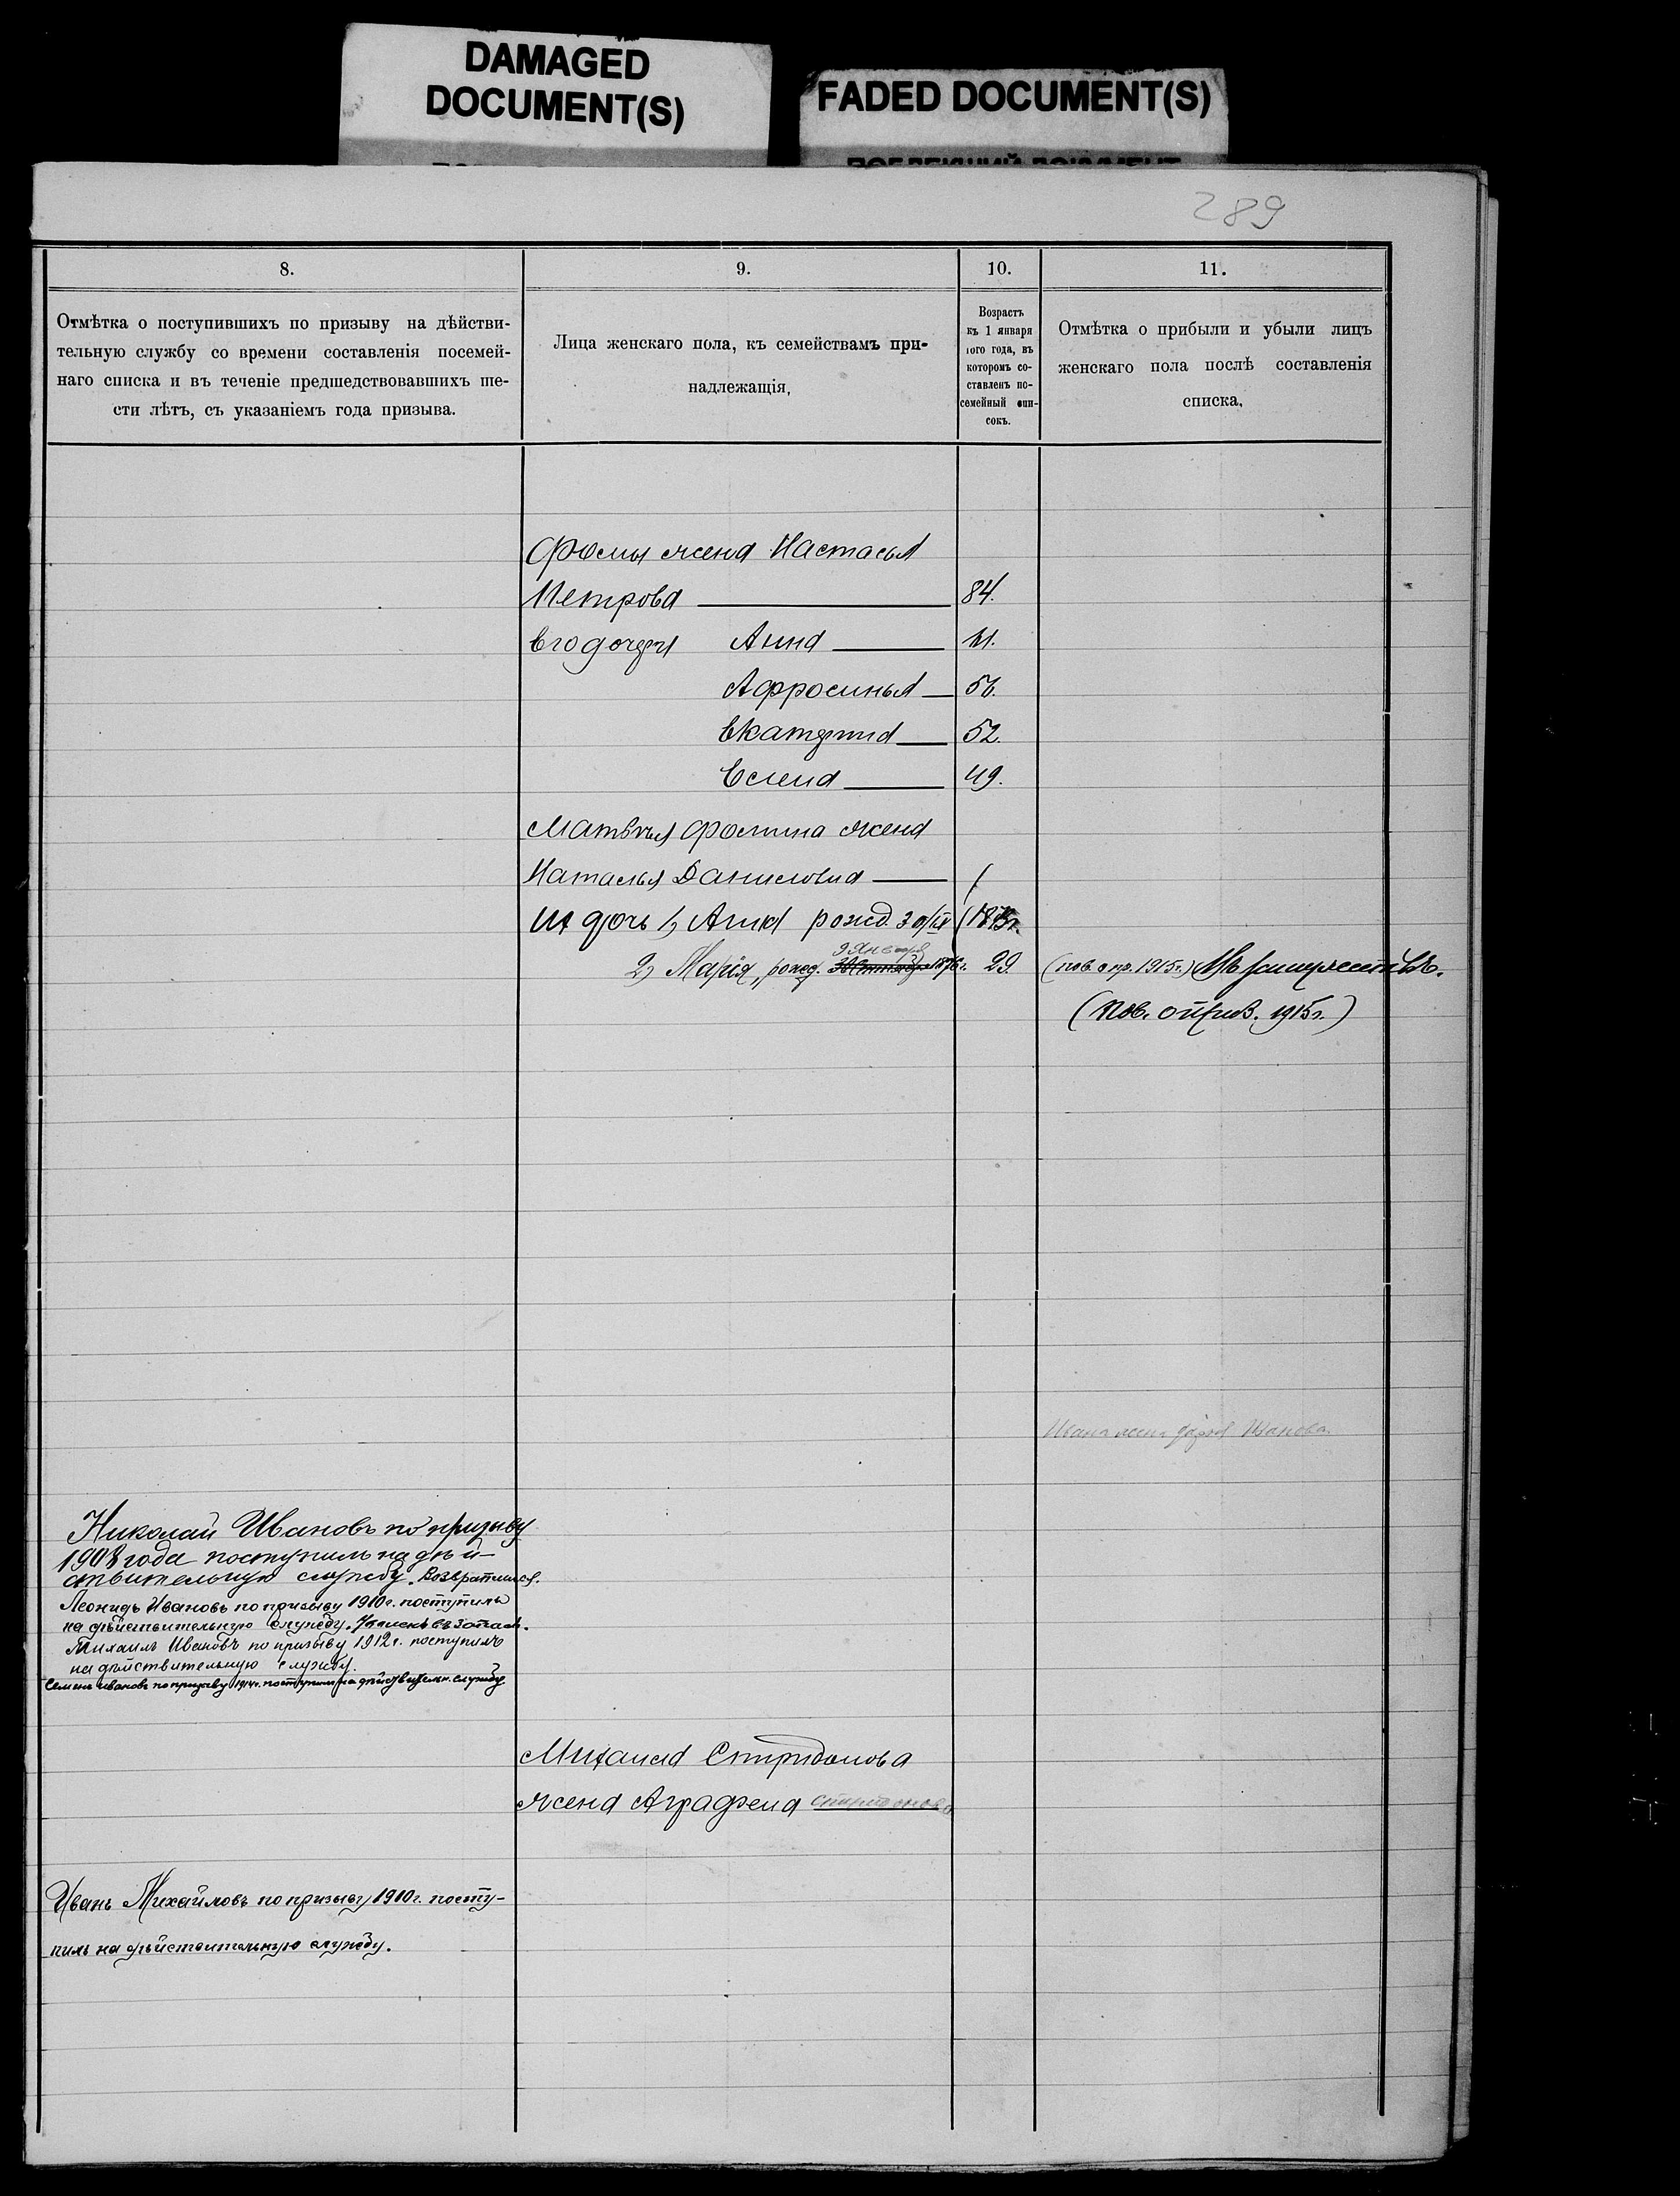 DAMAGED
DOCUMENT(S)
FADED DOCUMENT(S)
289
8.
Отмѣтка о поступившихъ по призыву на дѣйстви-
тельную службу со времени составленія посемей-
наго списка и въ теченіе предшедствовавшихъ ше-
сти лѣтъ, съ указаніемъ года призыва.
9.
Лица женскаго пола, къ семействамъ при-
надлежащія,
10.
Возрастъ
къ 1 января
того года, въ
которомъ со-
ставленъ по-
семейный спи-
сокъ.
11.
Отмѣтка о прибыли и убыли лицъ
женскаго пола послѣ составленія
списка,
Фомы жена Настасья
Петрова 84.
Его дочери Анна 61.
Афросинья 56.
Екатерина 52.
Елена 49.
Матвѣя Фомина жена
Наталья Данилова
их дочь 1) Анна рожд.
9 Января
2) Марія, рожд. 30 Сентября 1876 г. 29 (пов. о пр. 1915 г.) Въ замужествѣ.
(Пов. о прив. 1915 г.)
Ивана жена Дарья Иванова
Николай Ивановъ по призыву
1908 года поступилъ на дѣй-
ствительную службу. Возвратился.
Леонидъ Ивановъ по призыву 1910 г. поступилъ
на дѣйствительную службу. Уволенъ въ запасъ.
Михаилъ Ивановъ по призыву 1912 г. поступилъ
на дѣйствительную службу.
Семенъ Ивановъ по призыву 1914 г. поступилъ на дѣйствительн. службу
Михаила Спиридонова
жена Аграфена Спиридонова
Иванъ Михайловъ по призыву 1910 г. посту-
пилъ на дѣйствительную службу.